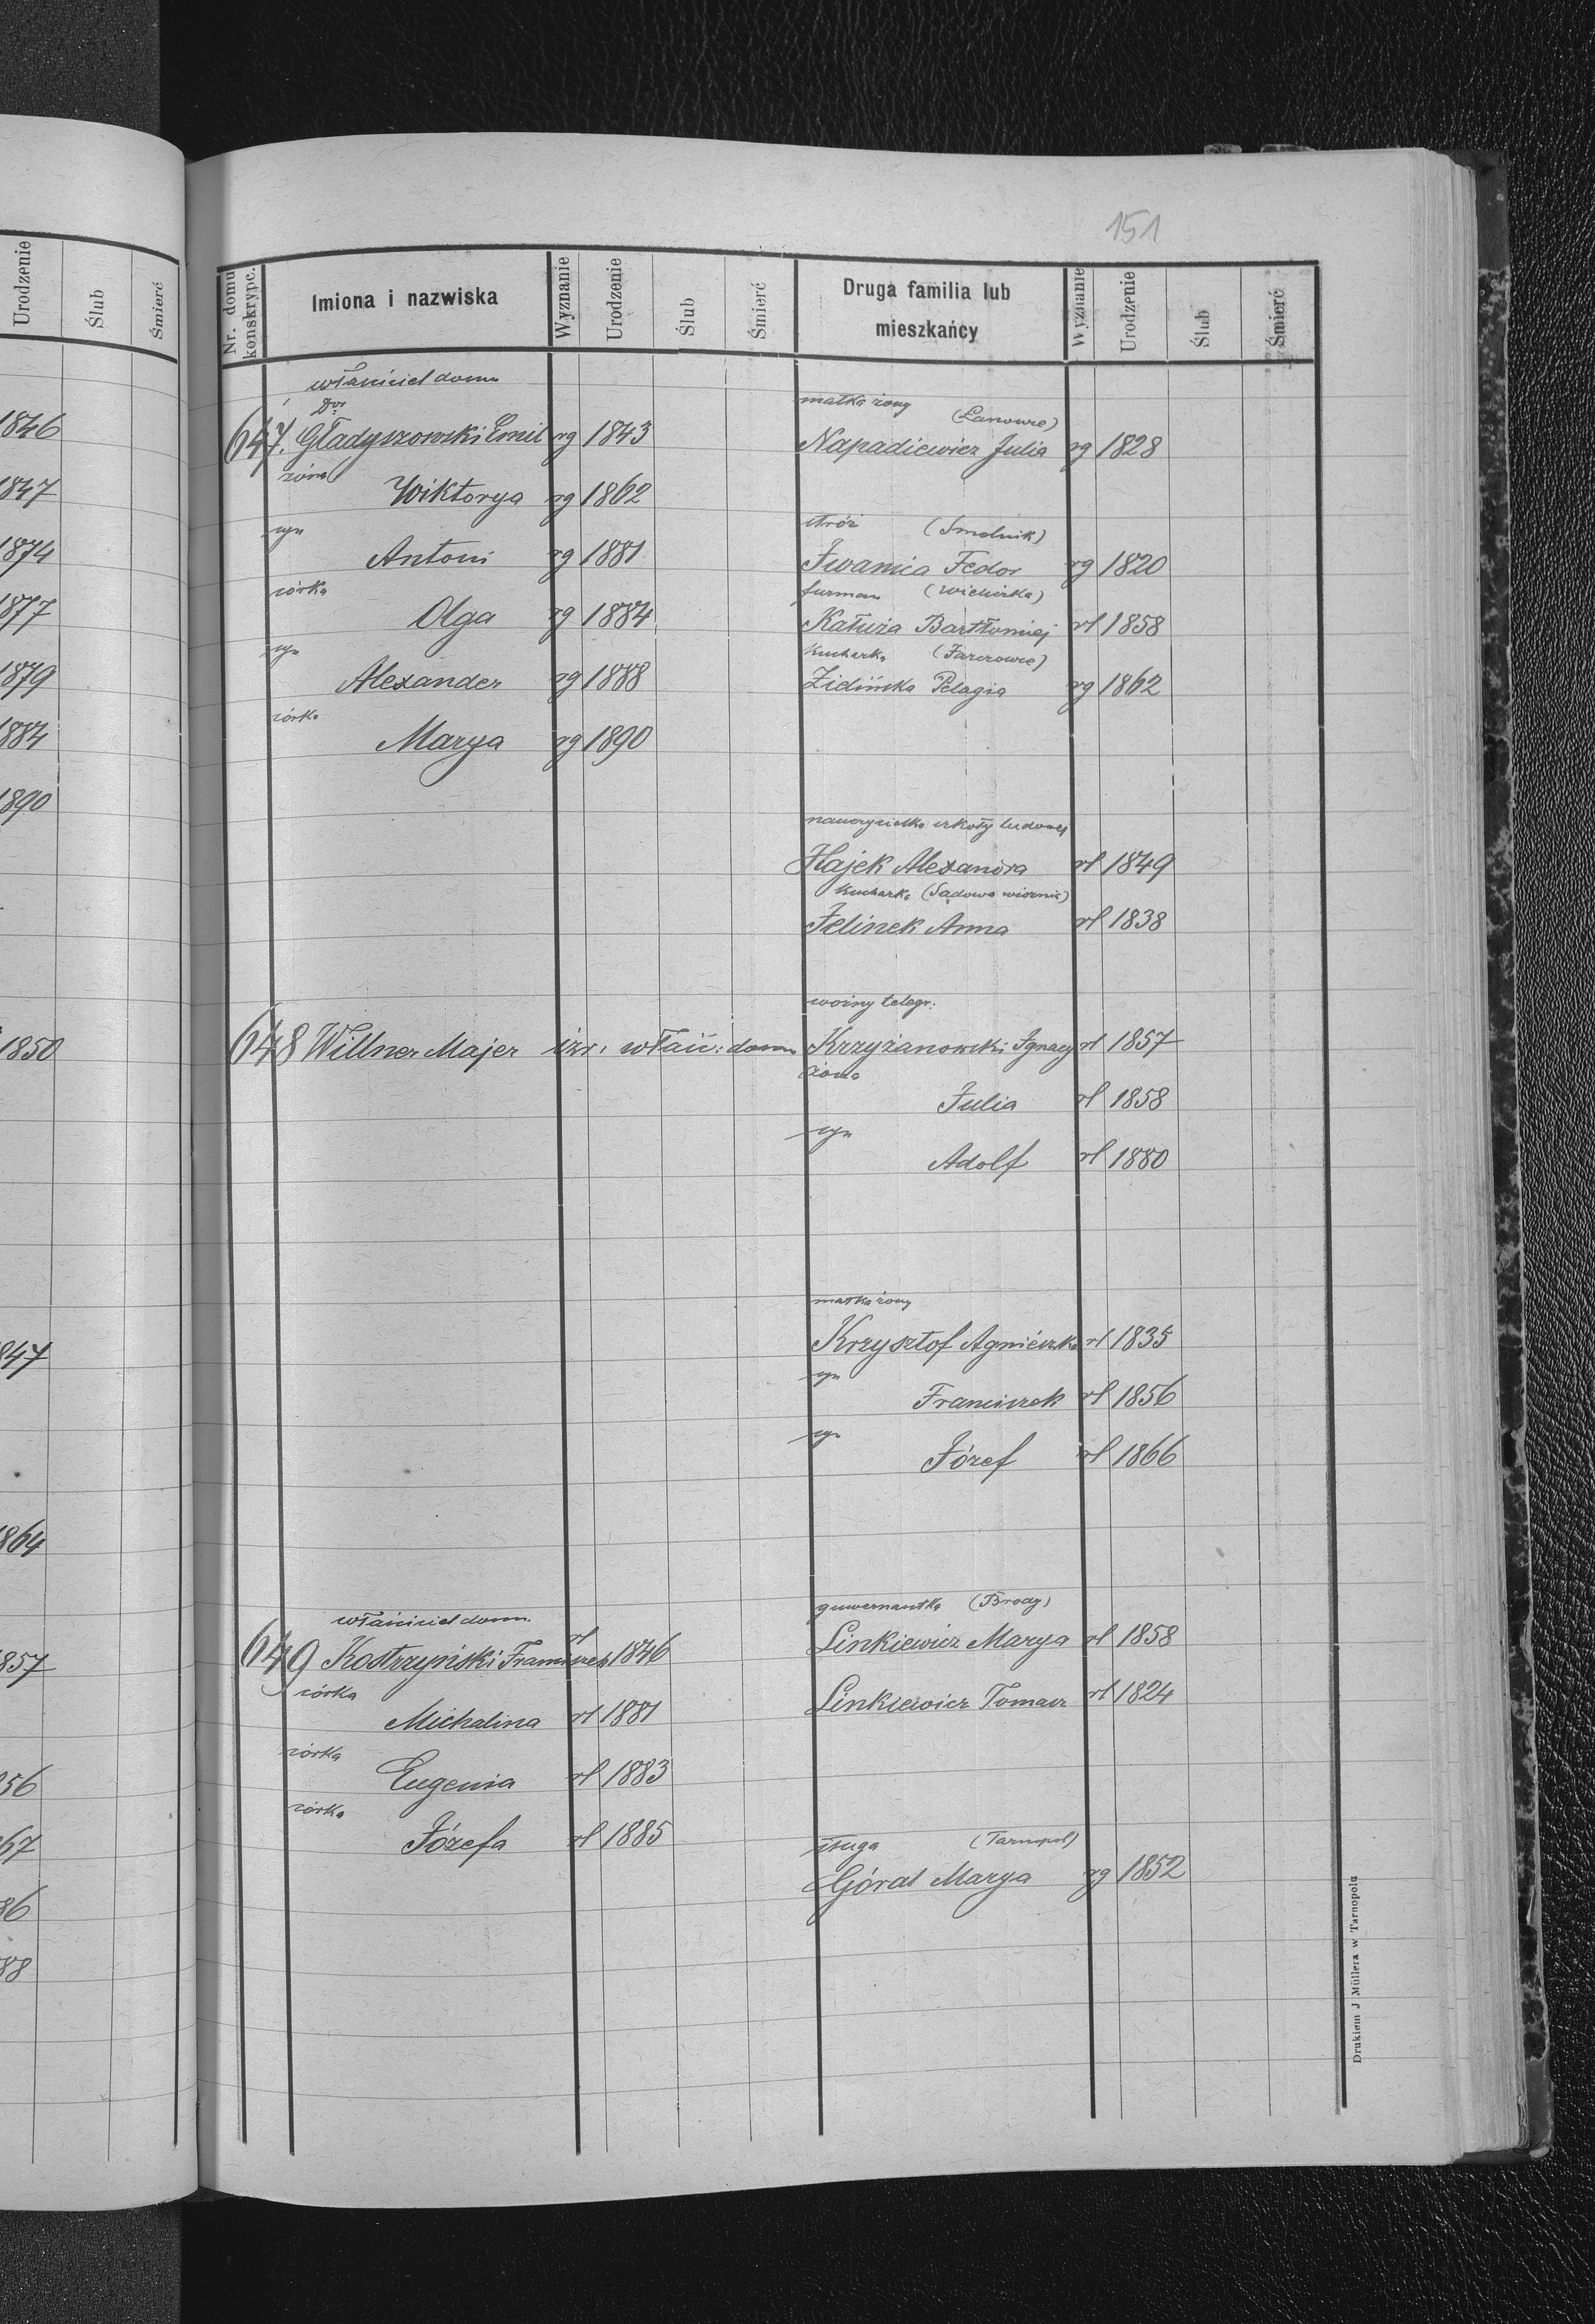 151
Urodzenie
Ślub
Śmierć
1846
1847
1874
1877
1879
1884
1890
1850
847
864
857
56
67
86
88
Nr. domu konskrypc.
Imiona i nazwiska
Wyznanie
Urodzenie
Ślub
Śmierć
Druga familia lub
mieszkańcy
Wyznanie
Urodzenie
Ślub
Śmierć
właściciel domu
Dor
647. Gładyszowski Emil rg 1843
żona
Wiktorya rg 1862
syn
Antoni rg 1881
córka
Olga rg 1884
syn
Alexander rg 1888
córka
Marya rg 1890
matka żony (Łanowce)
Napadiewicz Julia rg 1828
stróż (Smolnik)
Iwanica Fedor rg 1820
furman
Kałuża Bartłomiej rl 1858
kucharka
Zielińska Pelagia rg 1862
nauczycielka szkoły ludowej
Hajek Alexandra rl 1849
kucharka (Sądowa wisznia)
Jelinek Anna rl 1838
648 Willner Majer izr. właśc: domu
woźny telegr:
Krzyżanowski Ignacy rl 1857
żona
Julia rl 1858
syn
Adolf rl 1880
matka żony
Krzysztof Agnieszka rl 1835
syn
Franciszek rl 1856
syn
Józef rl 1866
właściciel domu.
649 Kostrzyński Franciszek rl 1846
córka
Michalina rl 1881
córka
Eugenia rl 1883
córka
Józefa rl 1885
guwernantka (Brody)
Linkiewicz Marya rl 1858
Linkiewicz Tomasz rl 1824
sługa (Tarnopol)
Góral Marya rg 1852
Drukiem J Müllera w Tarnopolu